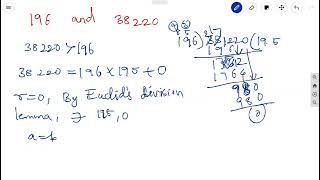 196 and 38220
38220 > 196
38220 = 196 × 195 + 0
r=0, By Euclid's division
lemma, ∃ 195, 0
a=b
196) 38220 (195
196↓
1862
1764↓
980
980
0